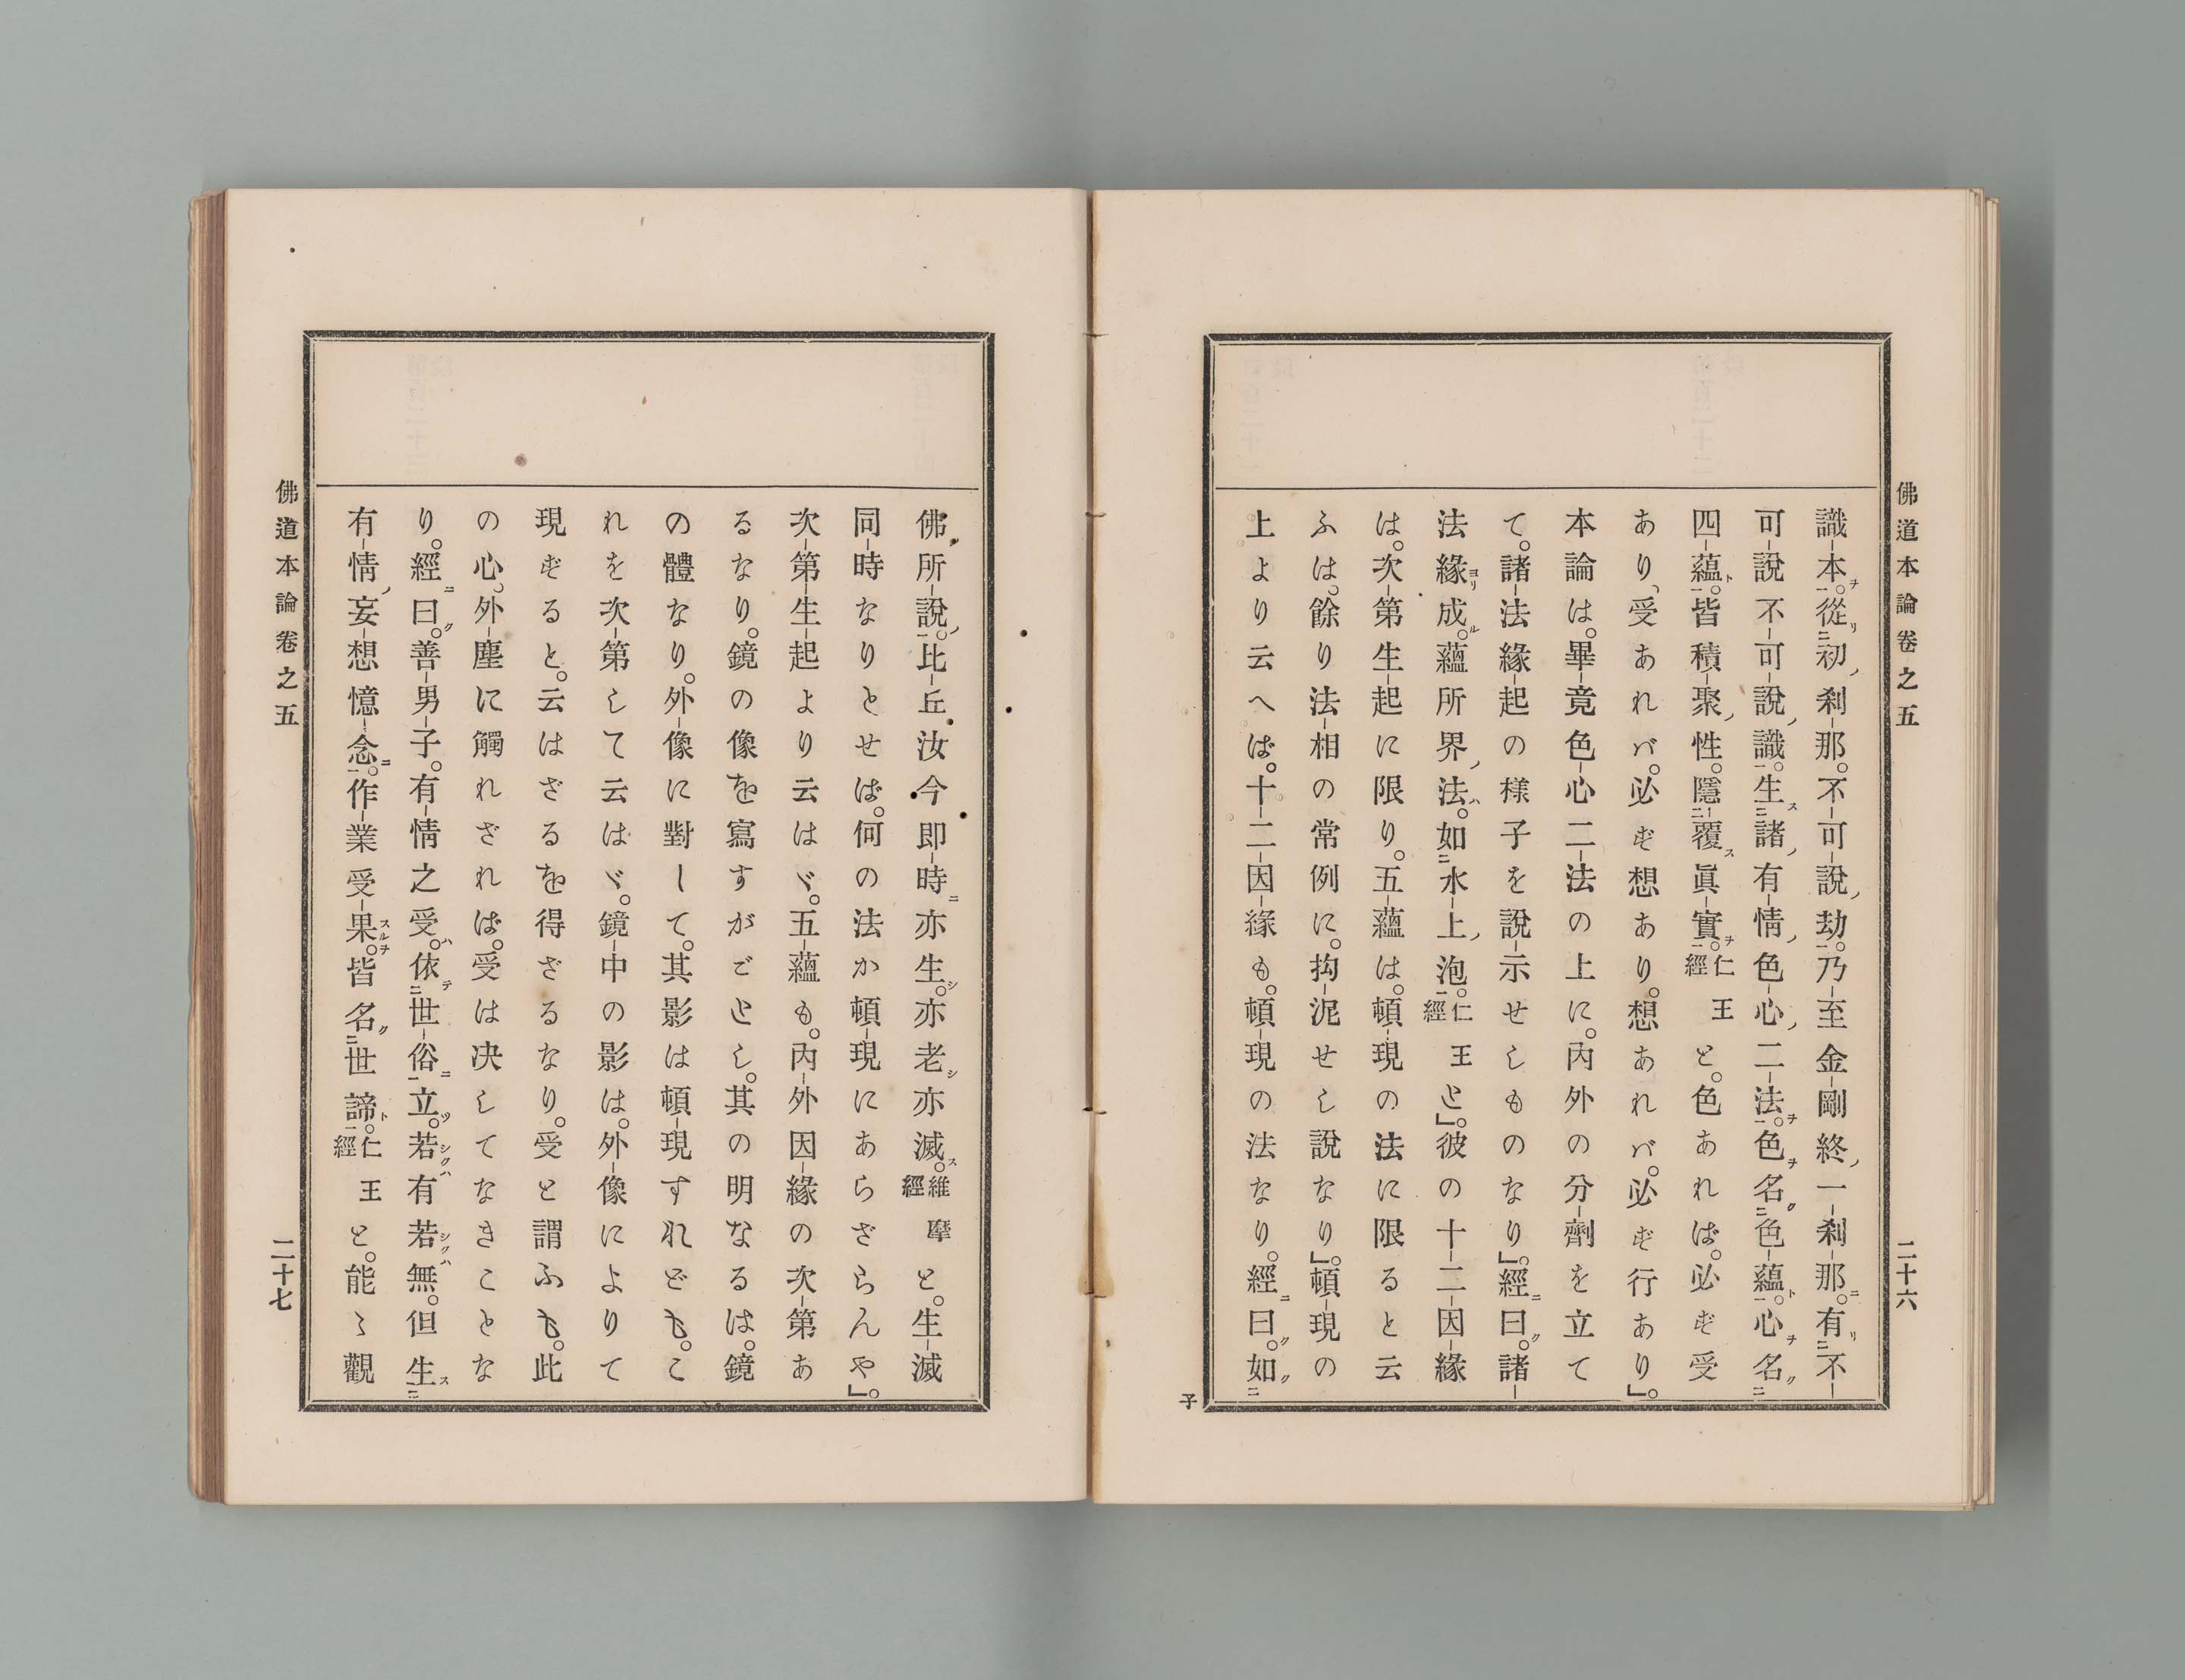 佛道本論卷之五
二十六
識本。從初刹那。不可說劫。乃至金剛終一刹那。有不
可說不可說識。生諸有情色心二法。色名色蘊。心名
四蘊。皆積聚性。隱覆眞實。仁王經と。色あれば。必ず受
あり、受あれバ。必ず想あり。想あれバ。必ず行あり」。
本論は。畢竟色心二法の上に。內外の分劑を立て
て。諸法緣起の樣子を說示せしものなり」。經曰。諸
法緣成。蘊所界法。如水上泡。仁王經と」。彼の十二因緣
は。次第生起に限り。五蘊は。頓現の法に限ると云
ふは。餘り法相の常例に。拘泥せし說なり」。頓現の
上より云へば。十二因緣も。頓現の法なり。經曰。如
子
佛所說。比丘汝今卽時亦生。亦老亦滅。維摩經と。生滅
同時なりとせば。何の法か頓現にあらざらんや」。
次第生起より云はゞ。五蘊も。內外因緣の次第あ
るなり。鏡の像を寫すがごとし。其の明なるは。鏡
の體なり。外像に對して。其影は頓現すれども。こ
れを次第して云はゞ。鏡中の影は。外像によりて
現ずると。云はざるを得ざるなり。受と謂ふも。此
の心。外塵に觸れざれば。受は決してなきことな
り。經曰。善男子。有情之受。依世俗立。若有若無。但生
有情妄想憶念。作業受果。皆名世諦。仁王經と。能〻觀
佛道本論卷之五
二十七